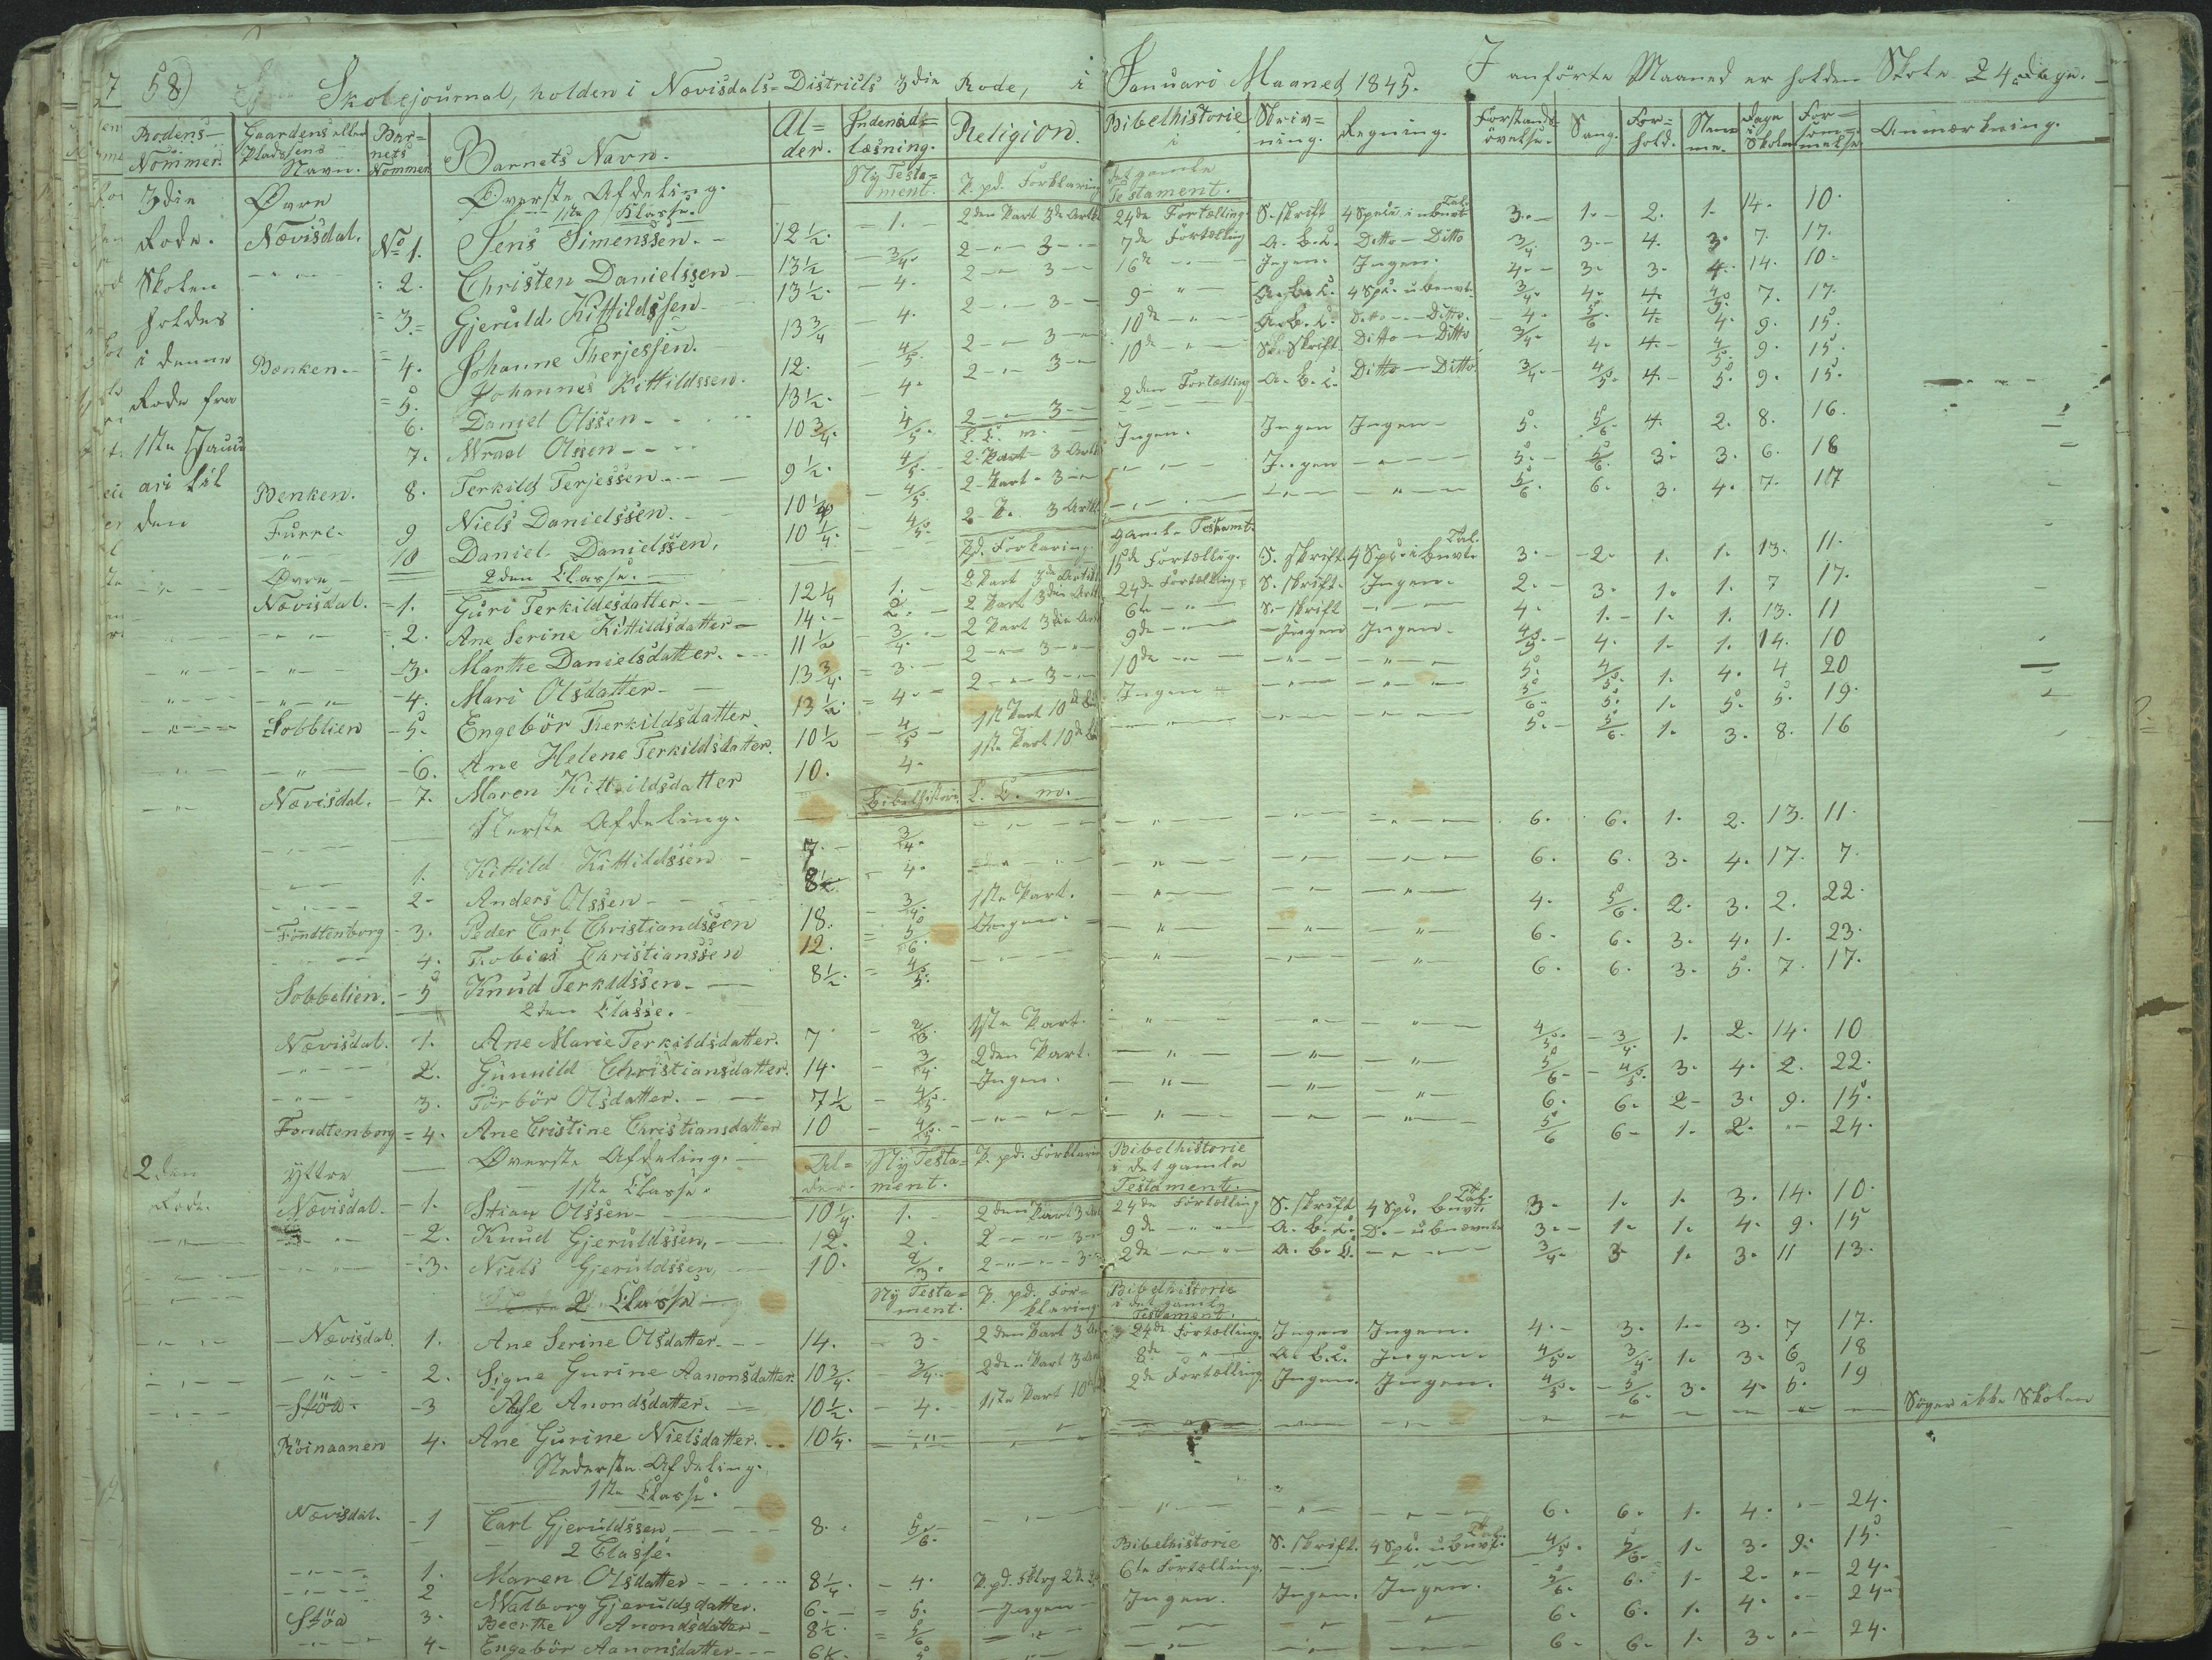 58)
Skolejournal, holden i Nævisdals=Districts 3die Rode, i Januari Maaned 1845. I anförte Maaned er holden Skole 24 Dage.
Rodens Nommer. Gaardens eller Pladsens Navn. Barnets Nommer Barnets Navn. Alder. Indenadslæsning. Religion. Bibelhistorie i Skrivning. Regning. Forstandsövelse. Sang. Forhold. Stemme. Dage i Skolen Forsömmelse. Anmærkning.
Ny Testament. P. pd. Forklaring det gamle Testament.
3die Øvre Øverste Afdeling.
1ste Klasse.
Rode. Nævisdal. No 1. Jens Simenssen. 12½ 1. 2den Part 3de Artk 24de Fortælling S. skrift 4 Speci. i ubnvt Tal. 3. 1. 2. 1. 14. 10.
Skolen 2. Christen Danielssen 13½ 3/4. 2 3 7de Fortælling A.B.C. Ditto Ditto 3/4. 3. 4. 3. 7. 17.
holdes 3. Gjeruld Kittildssen 13½. 4. 2 3 16de Ingen. Ingen. 4. 3. 3. 4. 14. 10.
i denne Benken. 4. Johanne Therjessen. 13¾ 4. 2 3 9 A.B.C. 4 Spc. ubenvt. 3/4. 4. 4. 4/5. 7. 17.
Rode fra 5. Johannes Kittildssen. 12. 4/5. 2 3 10de A.B.C. Ditto Ditto. 4. 5/6. 4. 4. 9. 15.
1ste Janu 6. Daniel Olssen 13½. 4. 2 3 10de Sk. Skrift Ditto Ditto 3/4. 4. 4. 4/5. 9. 15.
ari til 7. Wraal Olssen 10¾. 4/5. 2 3 2den Fortælling A.B.C. Ditto Ditto 3/4. 4/5. 4. 5. 9. 15.
L. L. m.
den Benken. 8. Terkild Terjessen 9½. 4/5. 2. Part 3 Artk Ingen. Ingen Ingen 5. 5/6. 4. 2. 8. 16.
Furre. 9 Niels Danielssen. 10¼ 4/5. 2 Part 3 Ingen 5. 5/6. 3. 3. 6. 18
10 Daniel Danielssen. 10¼. 4/5. 2 P. 3 Artk 5/6. 6. 3. 4. 7. 17
Øvre 2den Classe. Pd. Forkaring. gamle Testamt.
Nævisdal. 1. Guri Terkildesdatter. 12¼ 1. 2 Part 3de Artikl 15de Fortællig. S. skrift 4 Spc. i benvt. Tal. 3. 2. 1. 1. 13. 11.
2. Ane Serine Kittildsdatter 14. 2. 2 Part 3die Artk 24de Fortælling S. skrift. Ingen. 2. 3. 1. 1. 7 17.
3. Marthe Danielsdatter. 11½ 3/4. 2 Part 3die Ar 6te S. skrift 4. 1. 1. 1. 13. 11
4. Mari Olsdatter 13¾. 3. 2 3 9de Ingen Ingen. 4/5. 4. 1. 1. 14. 10
Lobblien 5. Engebör Therkildsdatter 13½. 4. 2 3 10de 5. 4/5. 1. 4. 4 20
6. Ane Helene Terkildsdatter. 10½ 4/5 1ste Part 10de Ingen 5/6. 5. 1. 5. 5. 19.
Nævisdal. 7. Maren Kittildsdatter 10. 4. 1ste Part 10de 5. 5/6. 1. 3. 8. 16
Nterste Afdeling. Bibelhistorie. L. L. m.
1. Kittild Kittildssen 7. 3/4. 6. 6. 1. 2. 13. 11.
2. Anders Olssen 8½. 4. 6. 6. 3. 4. 17. 7.
Fondtenborg 3. Peder Carl Christiandssen 18. 3/4. 1ste Part. 4. 5/6. 2. 3. 2. 22.
4. Tobias Christianssen 12. 5/6. Ingen. 6. 6. 3. 4. 1. 23.
Lobbelien. 5 Knud Terkildssen. 8½. 4/5. 6. 6. 3. 5. 7. 17.
2den Classe.
Nævisdal. 1. Ane Marie Terkildsdatter. 7 2/3. 1ste Part. 4/5. 3/4. 1. 2. 14. 10
2. Gunnild Christiansdatter. 14. 3/4. 2den Part. 5/6. 4/5. 3. 4. 2. 22.
3. Törbör Olsdatter. 7½ 4/5. Ingen. 6. 6. 2 3. 9. 15.
Fondtenborg 4. Ane Cristine Christiansdatter 10 4/5. 5/6 6 1. 2. 24.
2den Yttre Øverste Afdeling. Alder. Ny Testament. P. pd. Forklaring Bibelhistorie i det gamle Testament.
1ste Classe.
Rode. Nævisdal. 1. Stian Olssen 10¼. 1. 2den Part 3 24de Fortælling S. skrift 4 Spc. bnvt. Tal. 3. 1. 1. 3. 14. 10.
2. Knud Gjeruldssen, 12. 2. 2 3 9de A.B.C. D. ubnævnte 3. 1. 1. 4. 9. 15
3. Niels Gjeruldssen, 10. 2/3. 2 3 2de A.B.C. 3/4. 3 1. 3. 11 13.
2 Classe Ny Testament. P. pd. Forklaring. Bibelhistorie i det gamle Testament.
Nævisdal. 1. Ane Serine Olsdatter. 14. 3 2den Part 3 24de Fortælling. Ingen Ingen. 4. 3. 1. 3. 7 17.
2. Signe Gurine Aanonsdatter. 10¾. 3/4. 2den Part 3 8de A.B.C. Ingen. 4/5. 3/4. 1. 3. 6 18
Stöa. 3 Aase Anondsdatter. 10½. 4. 1ste Part 10 2de Fortælling. Ingen. Ingen. 4/5. 5/6. 3. 4. 5. 19
Röinaanen 4. Ane Gurine Nielsdatter. 10¼. Söger ikke Skolen
Nederste Afdeling.
1ste Classe.
Nævisdal. 1 Carl Gjeruldssen 8. 5/6. 6. 6. 1. 4. 24.
2 Classe. Bibelhistorie
1. Maren Olsdatter 8¼. 4. P. pd. 6te Fortælling. S. skrift. 4 Spc. ubnvt. Tal. 4/5. 5/6. 1. 3. 9. 15.
2 Walborg Gjeruldsdatter. 6. 5. Ingen Ingen. Ingen. Ingen. 5/6. 6. 1. 2. 24.
Stöa 3. Beerthe Anondsdatter 8½. 5/6 6. 6. 1. 4. 24
4. Engebör Aanonsdatter 6¼. 5 6. 6. 1. 3. 24.